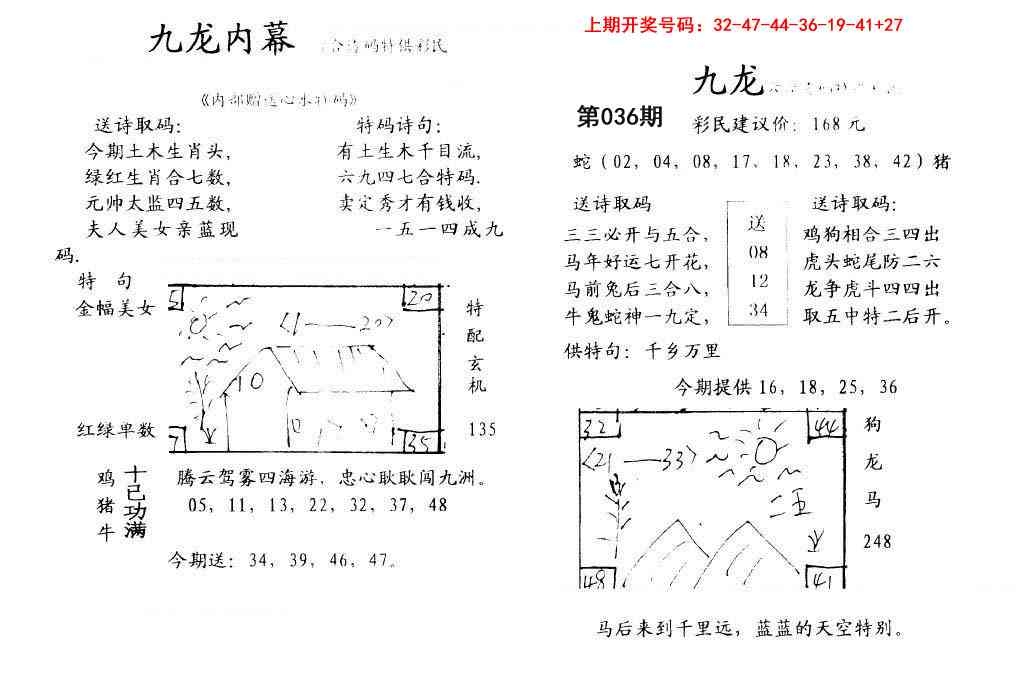 上期开奖号码：32-47-44-36-19-41+27
九龙内幕
特供彩民
送诗取码：
今期土木生肖头，
绿红生肖合七数，
元帅太监四五数，
夫人美女亲蓝现
码.
特码诗句：
有土生木千目流，
六九四七合特码.
卖定秀才有钱收，
一五一四成九
特 句
金幅美女
红绿单数
5
20
〈1——20〉
10
7
35
特
配
玄
机
135
鸡
猪
牛
十己功满
腾云驾雾四海游，忠心耿耿闯九洲。
05，11，13，22，32，37，48
今期送：34，39，46，47。
九龙
第036期
彩民建议价：168元
蛇（02，04，08，17、18，23，38，42）猪
送诗取码
三三必开与五合，
马年好运七开花，
马前兔后三合八，
牛鬼蛇神一九定，
送
08
12
34
送诗取码：
鸡狗相合三四出
虎头蛇尾防二六
龙争虎斗四四出
取五中特二后开。
供特句：千乡万里
今期提供16，18，25，36
32
44
〈21——33〉
48
41
狗
龙
马
248
马后来到千里远，蓝蓝的天空特别。